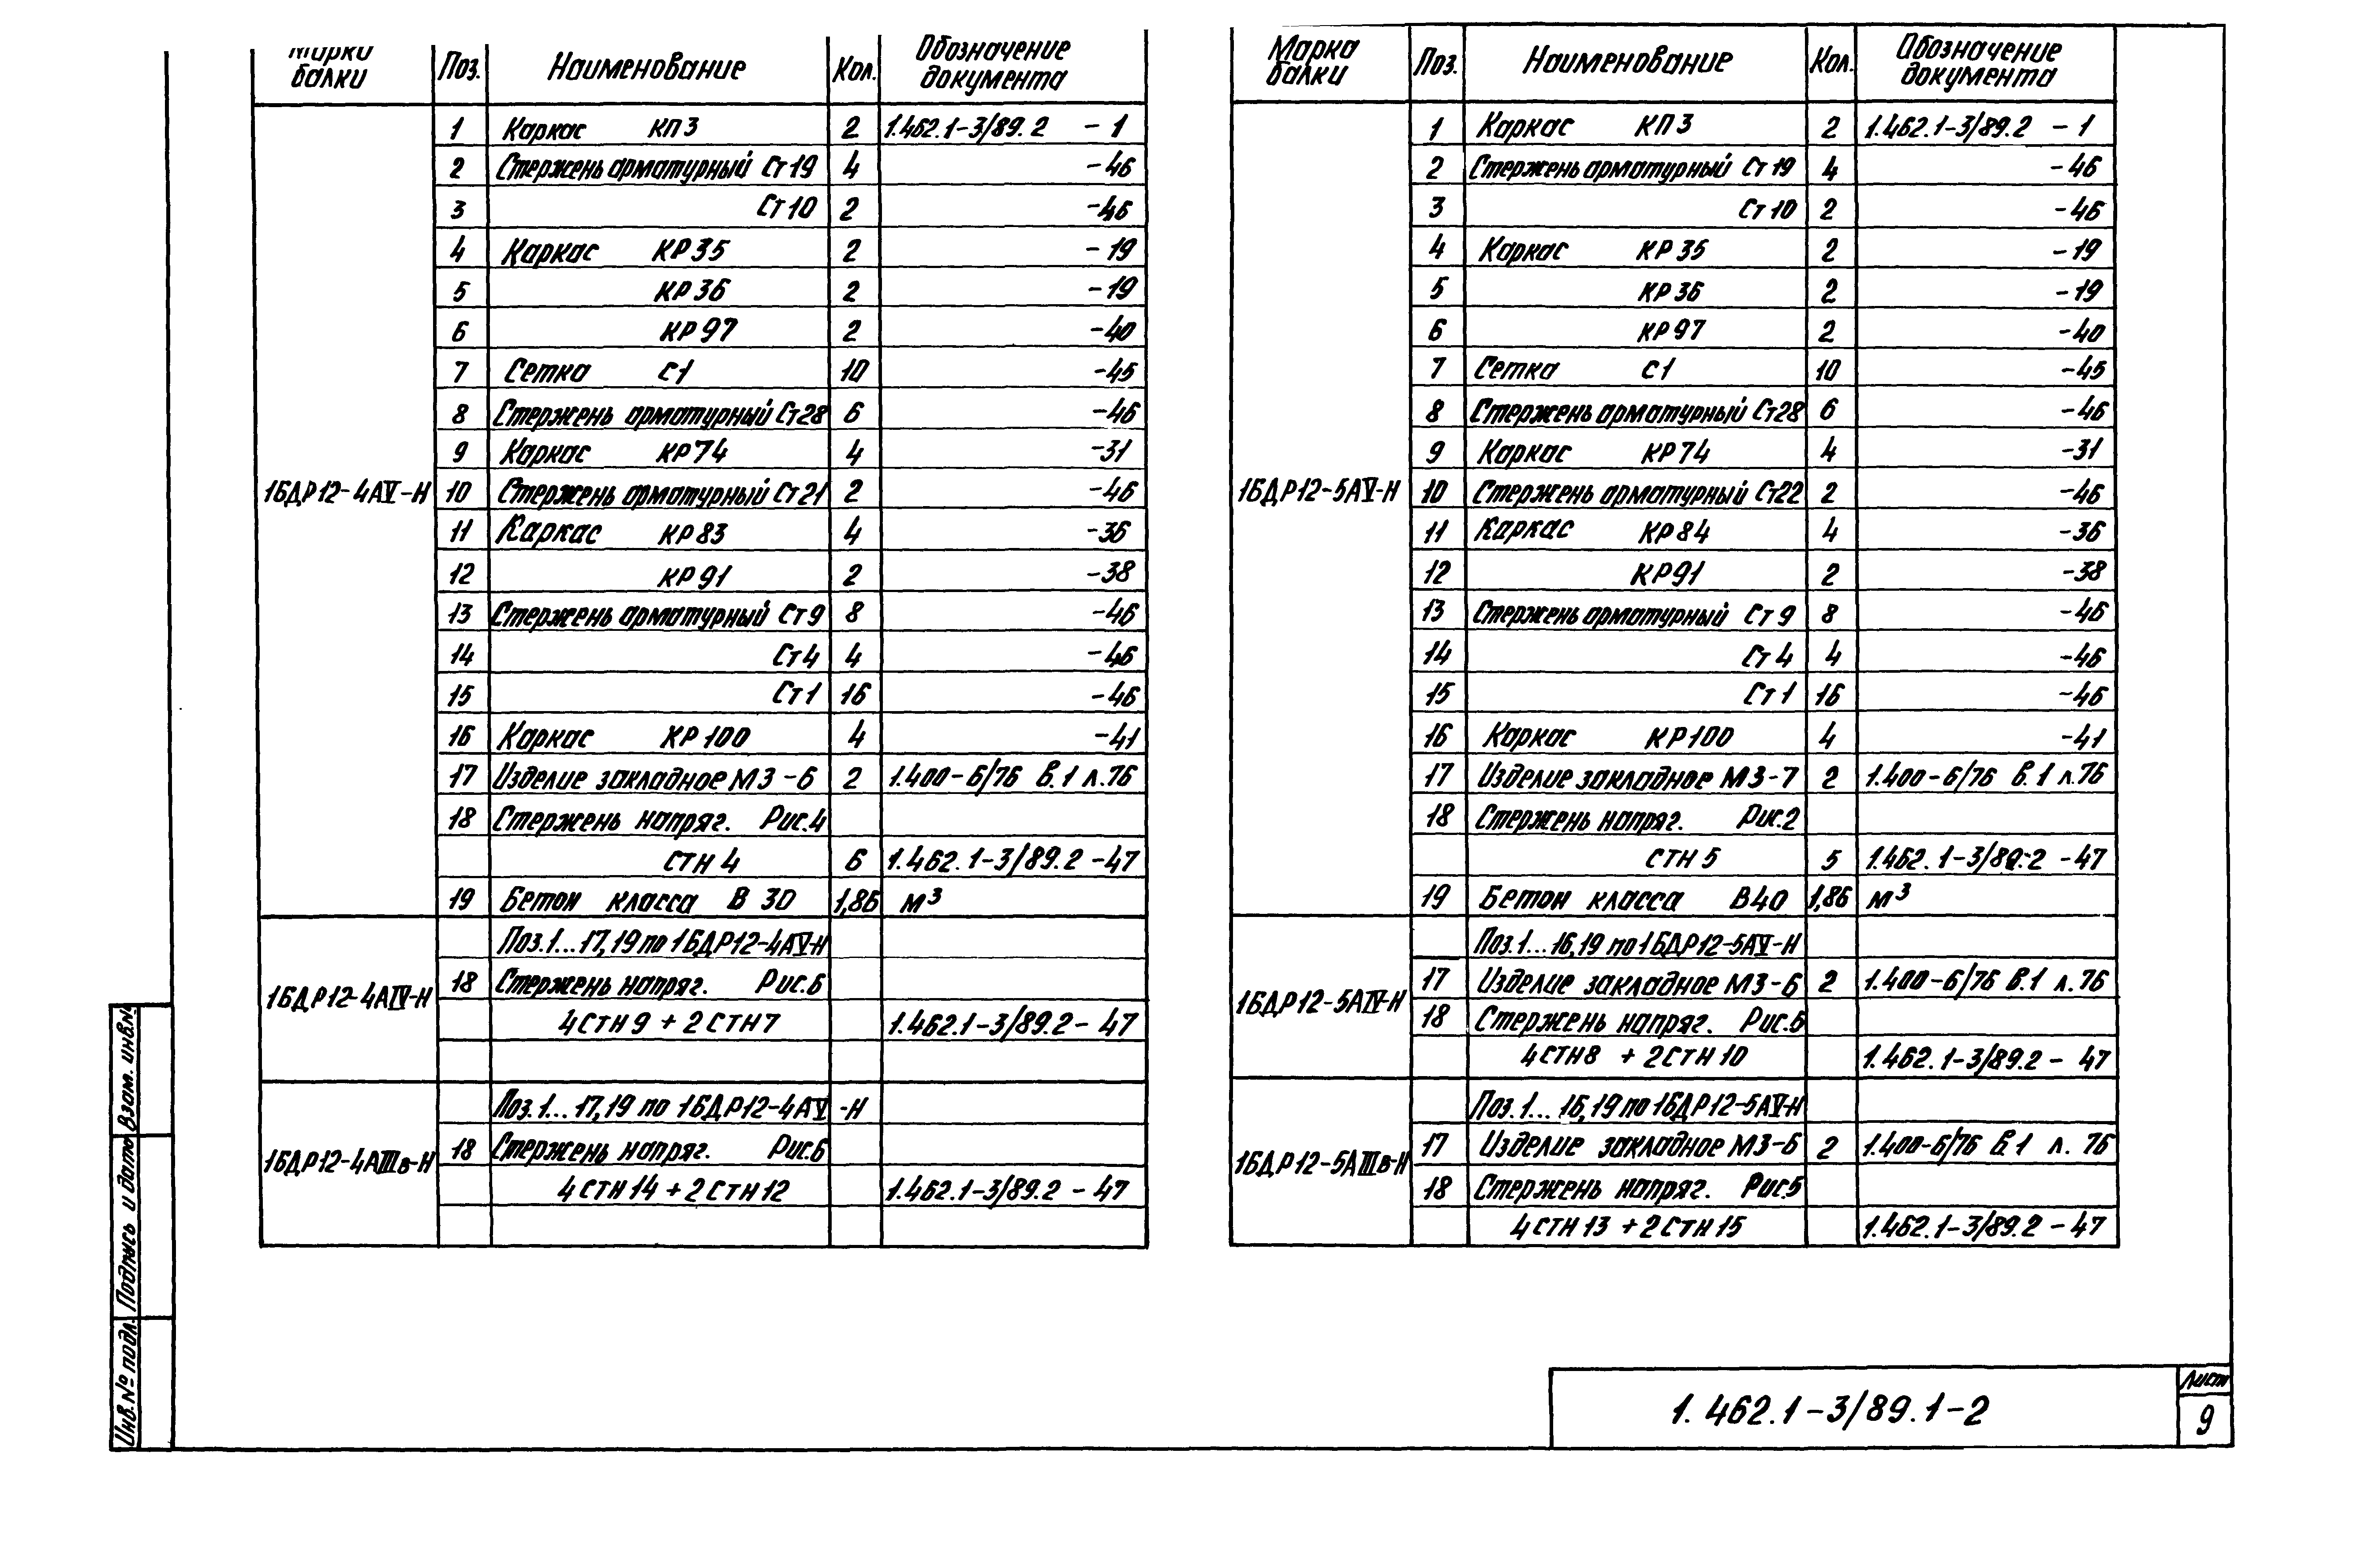 Марка балки Поз. Наименование Кол. Обозначение документа
1 Каркас КП3 2 1.462.1-3/89.2 -1
2 Стержень арматурный Ст19 4 -46
3 Ст10 2 -46
4 Каркас КР35 2 -19
5 КР36 2 -19
6 КР97 2 -40
7 Сетка С1 10 -45
8 Стержень арматурный Ст28 6 -46
9 Каркас КР74 4 -31
1БДР12-4АV-Н 10 Стержень арматурный Ст21 2 -46
11 Каркас КР83 4 -36
12 КР91 2 -38
13 Стержень арматурный Ст9 8 -46
14 Ст4 4 -46
15 Ст1 16 -46
16 Каркас КР100 4 -41
17 Изделие закладное МЗ-6 2 1.400-6/76 В.1 л.76
18 Стержень напряг. Рис.4
СТН 4 6 1.462.1-3/89.2 -47
19 Бетон класса В 30 1,86 м³
Поз.1...17,19 по 1БДР12-4АV-Н
1БДР12-4АIV-Н 18 Стержень напряг. Рис.6
4СТН9 + 2СТН7 1.462.1-3/89.2 - 47
Поз.1...17,19 по 1БДР12-4АV-Н
1БДР12-4АIIIв-Н 18 Стержень напряг. Рис.6
4СТН14 + 2СТН12 1.462.1-3/89.2 - 47
Марка балки Поз. Наименование Кол. Обозначение документа
1 Каркас КП3 2 1.462.1-3/89.2 -1
2 Стержень арматурный Ст19 4 -46
3 Ст10 2 -46
4 Каркас КР35 2 -19
5 КР36 2 -19
6 КР97 2 -40
7 Сетка С1 10 -45
8 Стержень арматурный Ст28 6 -46
9 Каркас КР74 4 -31
1БДР12-5АV-Н 10 Стержень арматурный Ст22 2 -46
11 Каркас КР84 4 -36
12 КР91 2 -38
13 Стержень арматурный Ст9 8 -46
14 Ст4 4 -46
15 Ст1 16 -46
16 Каркас КР100 4 -41
17 Изделие закладное МЗ-7 2 1.400-6/76 В.1 л.76
18 Стержень напряг. Рис.2
СТН 5 5 1.462.1-3/89.2 -47
19 Бетон класса В40 1,86 м³
Поз.1...16,19 по 1БДР12-5АV-Н
17 Изделие закладное МЗ-6 2 1.400-6/76 В.1 л.76
1БДР12-5АIV-Н
18 Стержень напряг. Рис.5
4СТН8 + 2СТН10 1.462.1-3/89.2 - 47
Поз.1...16,19 по 1БДР12-5АV-Н
1БДР12-5АIIIв-Н 17 Изделие закладное МЗ-6 2 1.400-6/76 В.1 л.76
18 Стержень напряг. Рис.5
4СТН13 + 2СТН15 1.462.1-3/89.2 - 47
Инв.№ подл. Подпись и дата Взам. инв.№
1.462.1-3/89.1-2
Лист
9